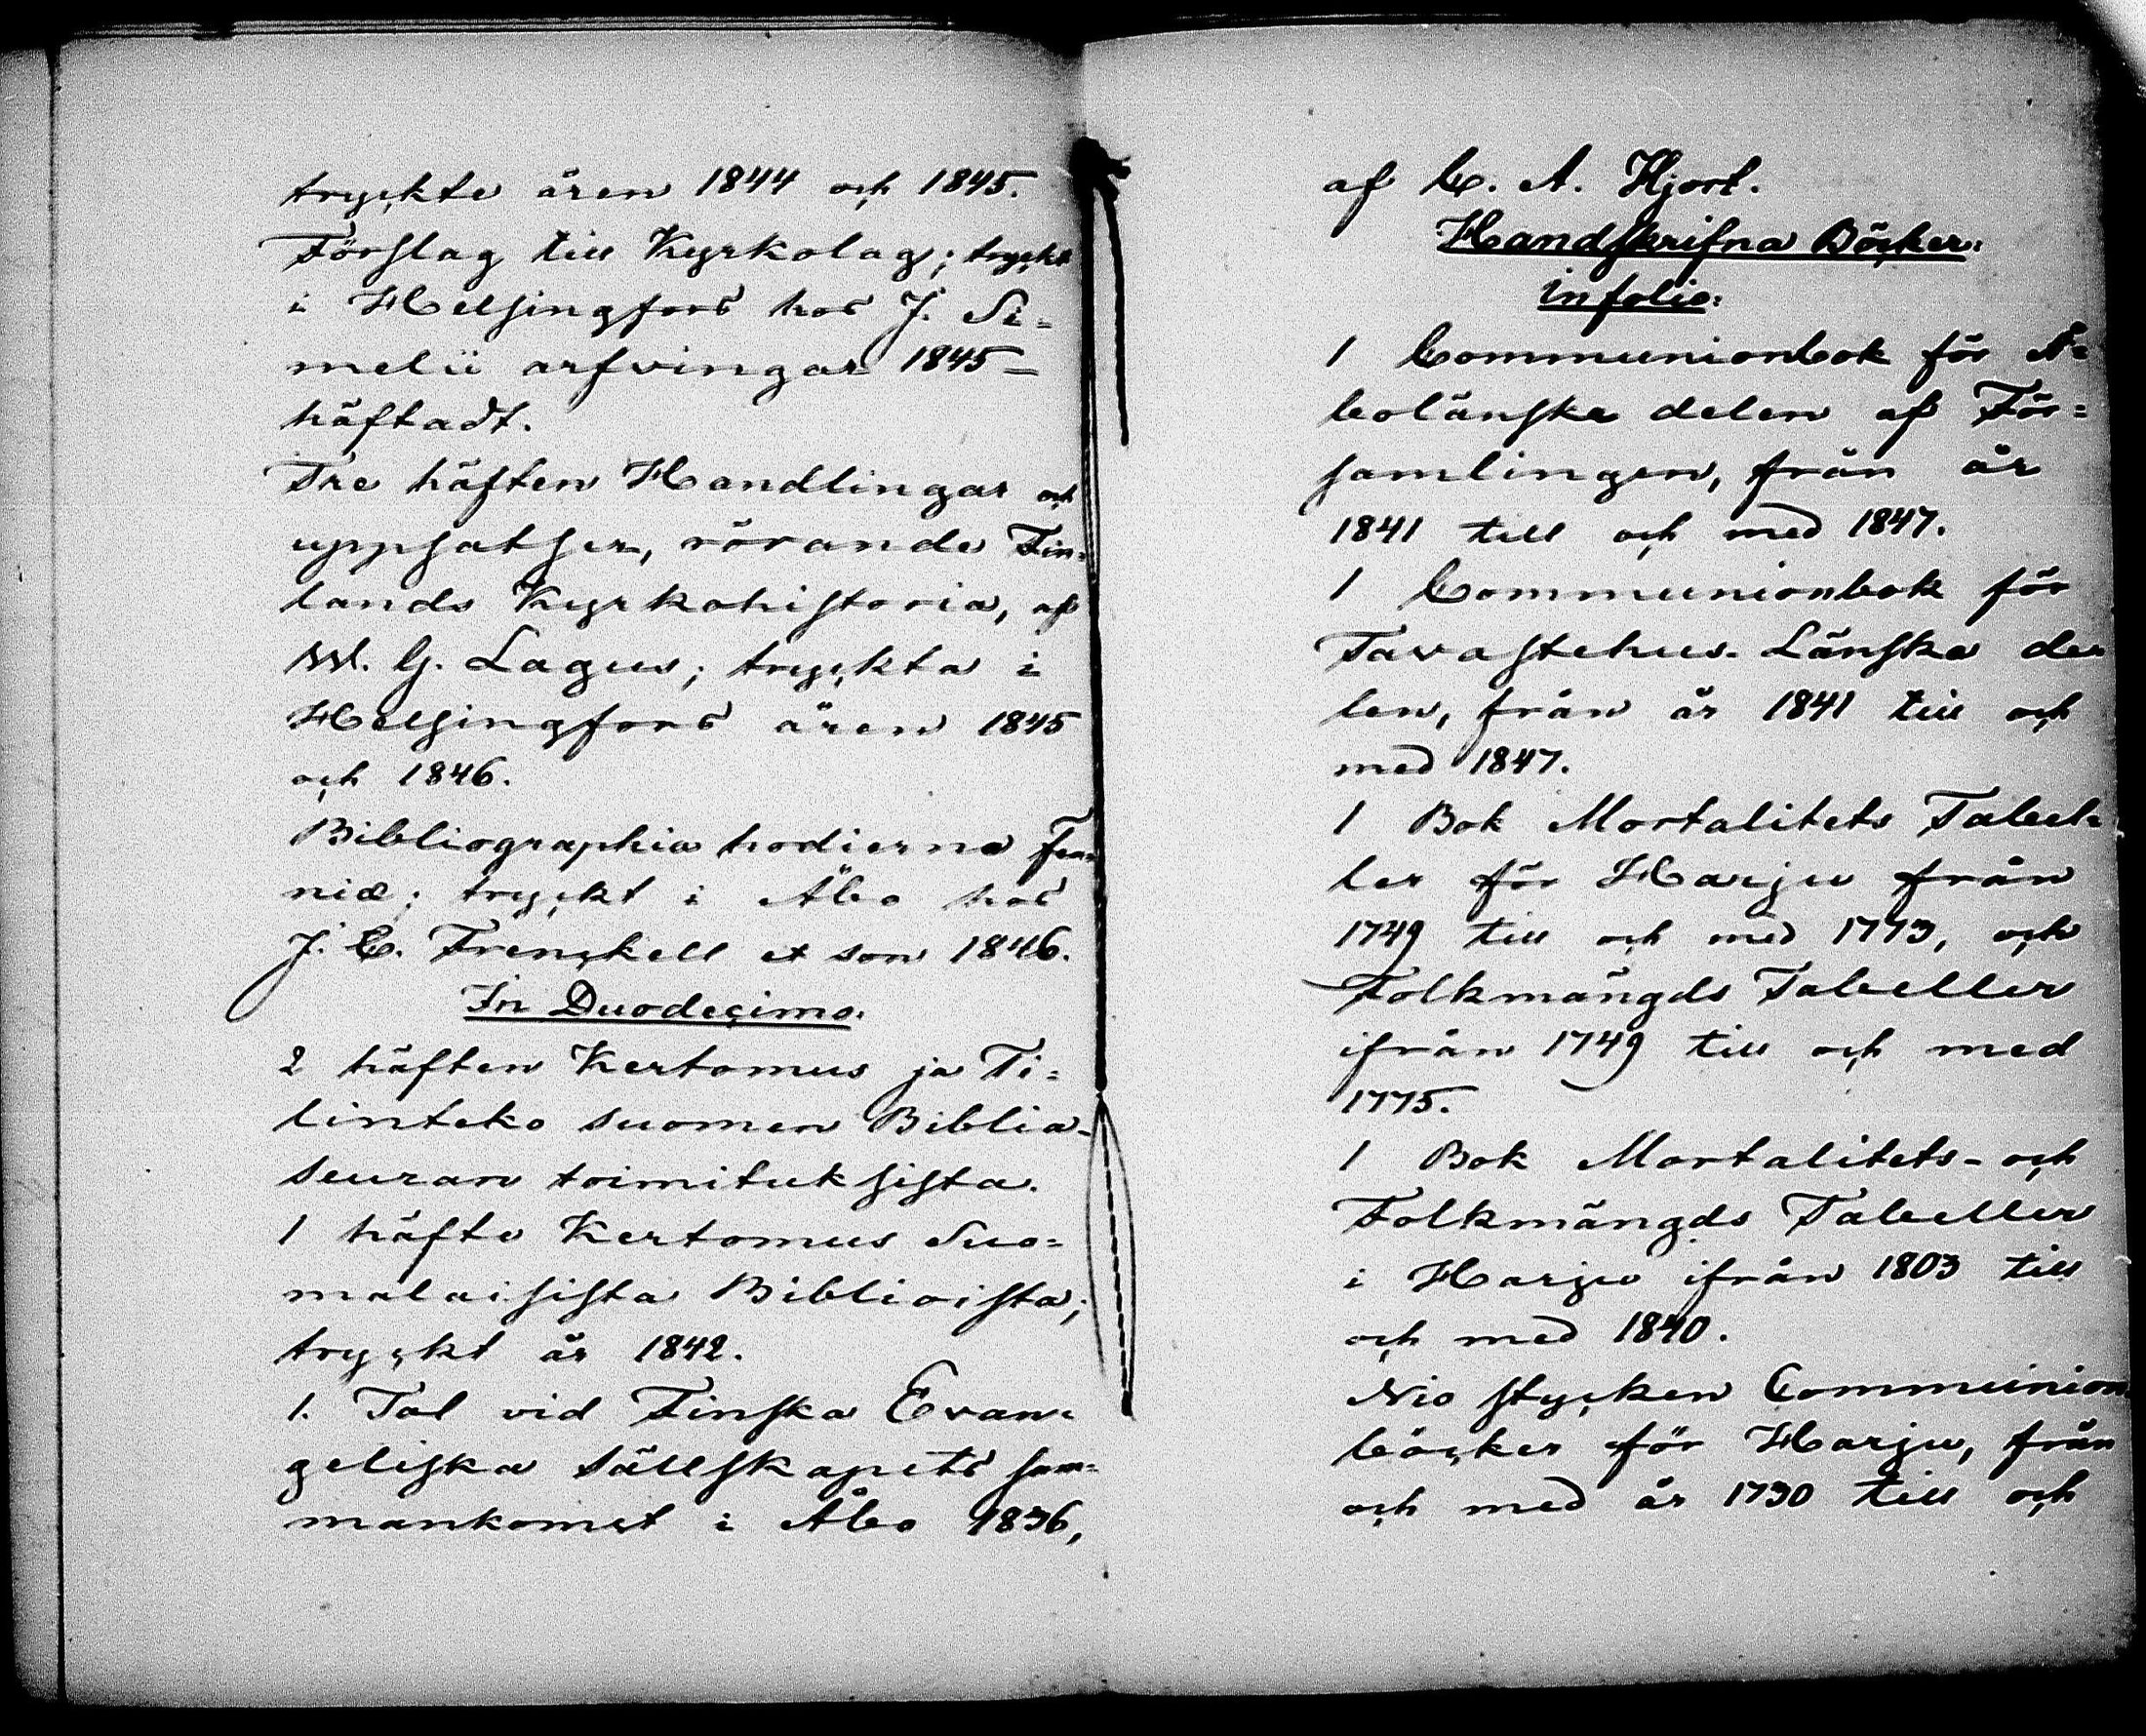 tryckte åren 1844 och 1845.
Förslag till Kyrkolag; tryckt
i Helsingfors hos J. Si=
melii arfvingar 1845 –
häftadt.
Tre häften Handlingar och
uppsatser, rörande Fin=
lands Kyrkohistoria, af
W. G. Lagus; tryckta i
Helsingfors åren 1845
och 1846.
Bibliographia hodierna Fen=
niæ; tryckt i Åbo hos
J. C. Frenckell et son 1846.
In Duodecimo.
2 häften Kertomus ja Ti=
linteko suomen Biblia-
seuran toimituksista.
1 häfte Kertomus Suo=
malaisista Biblioista;
tryckt år 1842.
1. Tal vid Finska Evan=
geliska Sällskapets sam=
mankomst i Åbo 1836,
af C. A. Hjort.
Handskrifna Böcker.
in folio:
1 Communionbok för Å=
bolänska delen af För=
samlingen, från år
1841 till och med 1847.
1 Communionbok för
Tavastehus Länska de=
len, från år 1841 till och
med 1847.
1 Bok Mortalitets Tabel=
ler för Harju från
1749 till och med 1773, och
Folkmängds Tabeller
ifrån 1749 till och med
1775.
1 Bok Mortalitets- och
Folkmängds Tabeller
i Harju ifrån 1803 till
och med 1840.
Nio stycken Communion
böcker för Harju, från
och med år 1730 till och